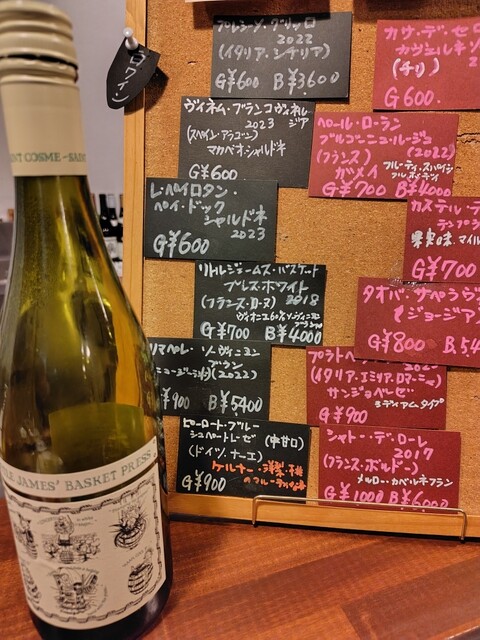 白ワイン
グリッロ
2022
(イタリア・シチリア)
G¥600 B¥3,600
ヴィネム・ブランコヴィネル
2023 ジア
(スペイン・アラゴン)
マカベオ・シャルドネ
G¥600
レ・ペイロタン・
ペイ・ドック
シャルドネ
2023
G¥600
リトルジェームズ・バスケット
プレス・ホワイト
(フランス・ローヌ) 2018
G¥700 B¥4000
リマペレ・ソーヴィニヨン
ブラン
(2022)
¥900 B¥5400
ピーロート・ブルー
シュペートレーゼ (中甘口)
(ドイツ/ナーエ)
ケルナー・洋梨・桃
G¥900
カサ・デ・セ
カヴェルネソ
(チリ)
G600.
ペール・ローラン
ブルゴーニュ・ルージュ
(フランス) (2022)
ガメイ フルーティ・スパイシー
G¥700 B¥4000
カステル・デ
テンプラ
果実味、マイル
G¥700
タオバ・サペラヴ
(ジョージア
G¥800 B5,4
プラトペ
(イタリア・エミリア.ロマーニャ)
サンジョベーゼ
ミディアムタイプ
G¥900
シャトー・デ・ローレ
2017
(フランス・ボルドー)
メルロー・カベルネフラン
G¥1000 B¥6000
NT COSME - SA
LE JAMES' BASKET PRESS